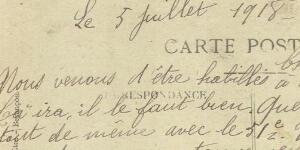 Le 5 juillet 1918
CARTE POST
Nous venons d'être habillés à
CORRESPONDANCE
Ca ira, il le faut bien, Que
tout de même avec le 51e